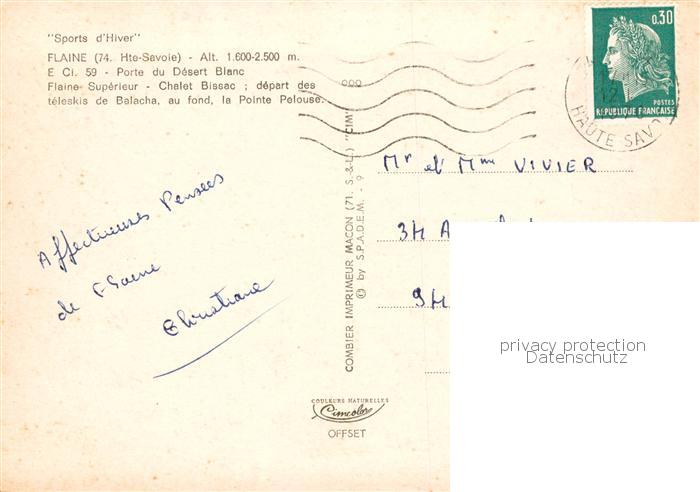 "Sports d'Hiver"
FLAINE (74. Hte-Savoie) - Alt. 1.600-2.500 m.
E Ci. 59 - Porte du Désert Blanc
Flaine Supérieur - Chalet Bissac ; départ des
téleskis de Balacha, au fond, la Pointe Pelouse.
Affectueuses Pensées
de Flaine
Christiane
COMBIER IMPRIMEUR MACON (71. S.-&-L.) "CIM"
© by S.P.A.D.E.M. - 9
COULEURS NATURELLES
Cimcolor
OFFSET
0,30
POSTES
REPUBLIQUE FRANÇAISE
12
HAUTE SAVOIE
Mr et Mme VIVIER
34 A
94
privacy protection
Datenschutz